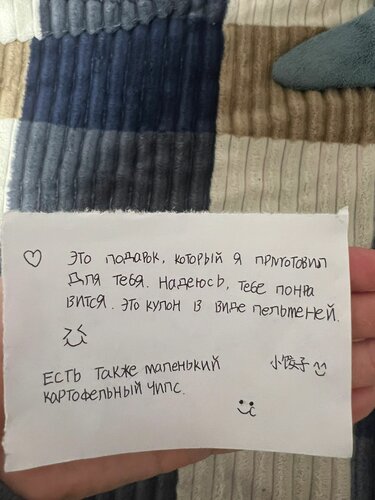 Это подарок, который я приготовил
для тебя. Надеюсь, тебе понра
вится. Это кулон в виде пельменей.
Есть также маленький
картофельный чипс.
小饺子